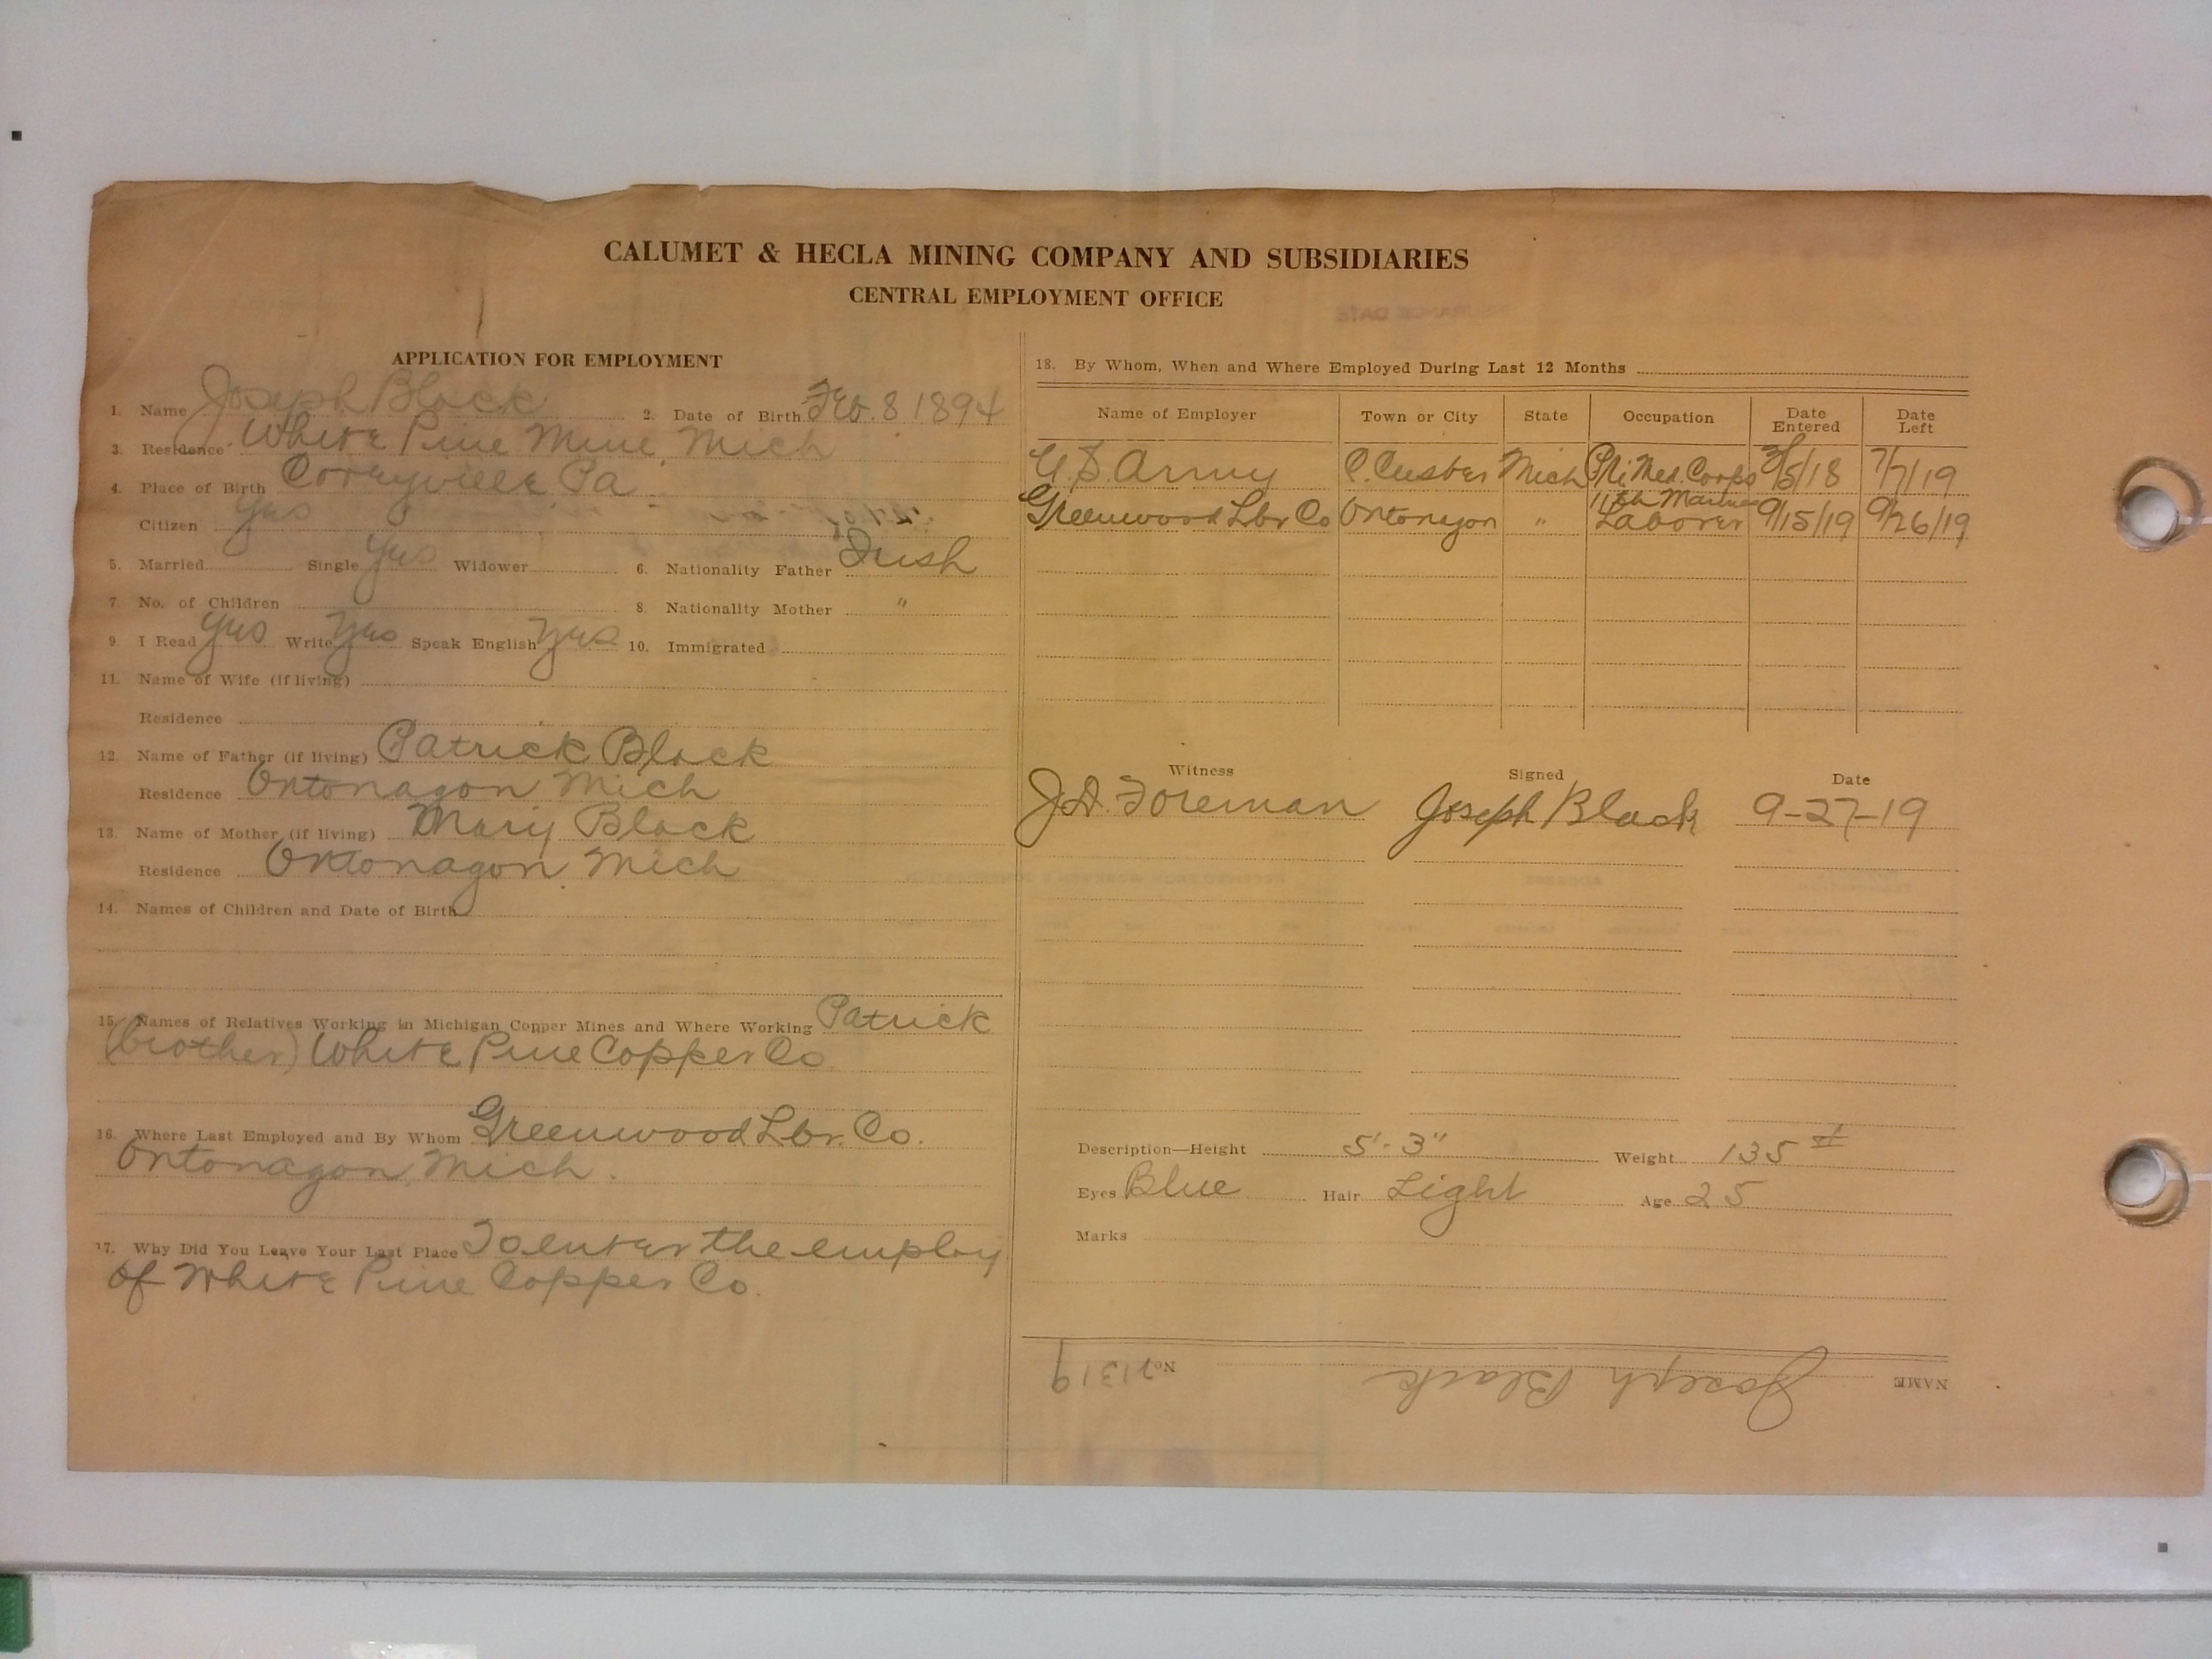 CALUMET & HECLA MINING COMPANY AND SUBSIDIARIES
CENTRAL EMPLOYMENT OFFICE
APPLICATION FOR EMPLOYMENT
1. Name Joseph Black 2. Date of Birth Feb. 8 1894
3. Residence White Pine Mine, Mich
4. Place of Birth Corryville Pa
Citizen Yes
5. Married Single Yes Widower 6. Nationality Father Irish
7. No. of Children 8. Nationality Mother "
9. I Read Yes Write Yes Speak English Yes 10. Immigrated
11. Name of Wife (if living)
Residence
12. Name of Father (if living) Patrick Black
Residence Ontonagon Mich
13. Name of Mother (if living) Mary Black
Residence Ontonagon, Mich
14. Names of Children and Date of Birth
15. Names of Relatives Working in Michigan Copper Mines and Where Working Patrick
(brother) White Pine Copper Co
16. Where Last Employed and By Whom Greenwood Lbr. Co.
Ontonagon, Mich.
17. Why Did You Leave Your Last Place To enter the employ
of White Pine Copper Co.
18. By Whom, When and Where Employed During Last 12 Months
Name of Employer Town or City State Occupation Date Entered Date Left
U.S. Army C. Custer Mich Med. Corps /5/18 7/7/19
11th
Greenwood Lbr Co Ontonagon " Laborer 9/15/19 9/26/19
Witness Signed Date
J.D. Foreman Joseph Black 9-27-19
Description—Height 5'-3" Weight 135 #
Eyes Blue Hair Light Age 25
Marks
NAME Joseph Black No. 21319